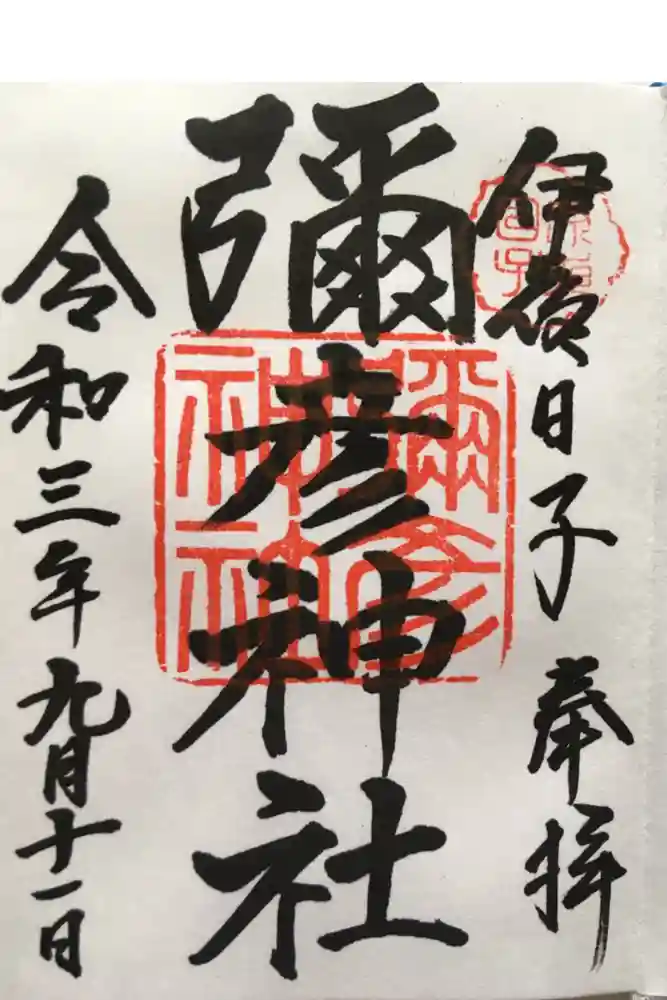 伊夜日子 奉拝
彌彦神社
彌彦神社
令和三年九月十一日